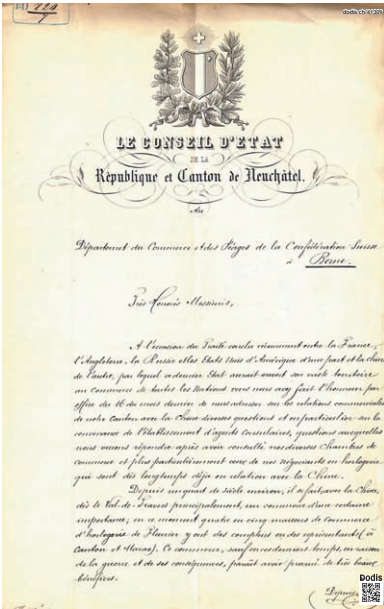 dodis.ch/41309
LE CONSEIL D'ETAT
DE LA
République et Canton de Neuchâtel.
Au
Département du Commerce et des Péages de la Confédération Suisse
à Berne.
Très honorés Messieurs,
A l'occasion du Traité conclu récemment entre la France,
l'Angleterre, la Russie et les Etats Unis d'Amérique d'une part et la Chine
de l'autre, par lequel ce dernier Etat aurait ouvert son vaste territoire
au commerce de toutes les Nations vous nous avez fait l'honneur par
office du 16 du mois dernier de nous adresser sur les relations commerciales
de notre Canton avec la Chine diverses questions et en particulier sur la
convenance de l'établissement d'agents consulaires, questions auxquelles
nous venons répondre après avoir consulté nos diverses chambres de
commerce et plus particulièrement ceux de nos négociants en horlogerie
qui sont dès longtemps déjà en relation avec la Chine.
Depuis un quart de siècle environ, il se fait avec la Chine,
dès le Val-de-Travers principalement, un commerce d'une certaine
importance, en ce moment quatre ou cinq maisons de commerce
d'horlogerie de Fleurier y ont des comptoirs ou des représentants (à
Canton et Macao). Ce commerce, sauf en ces derniers temps en raison
de la guerre et de ses conséquences, paraît avoir procuré de très beaux
bénéfices.
Depuis
Dodis